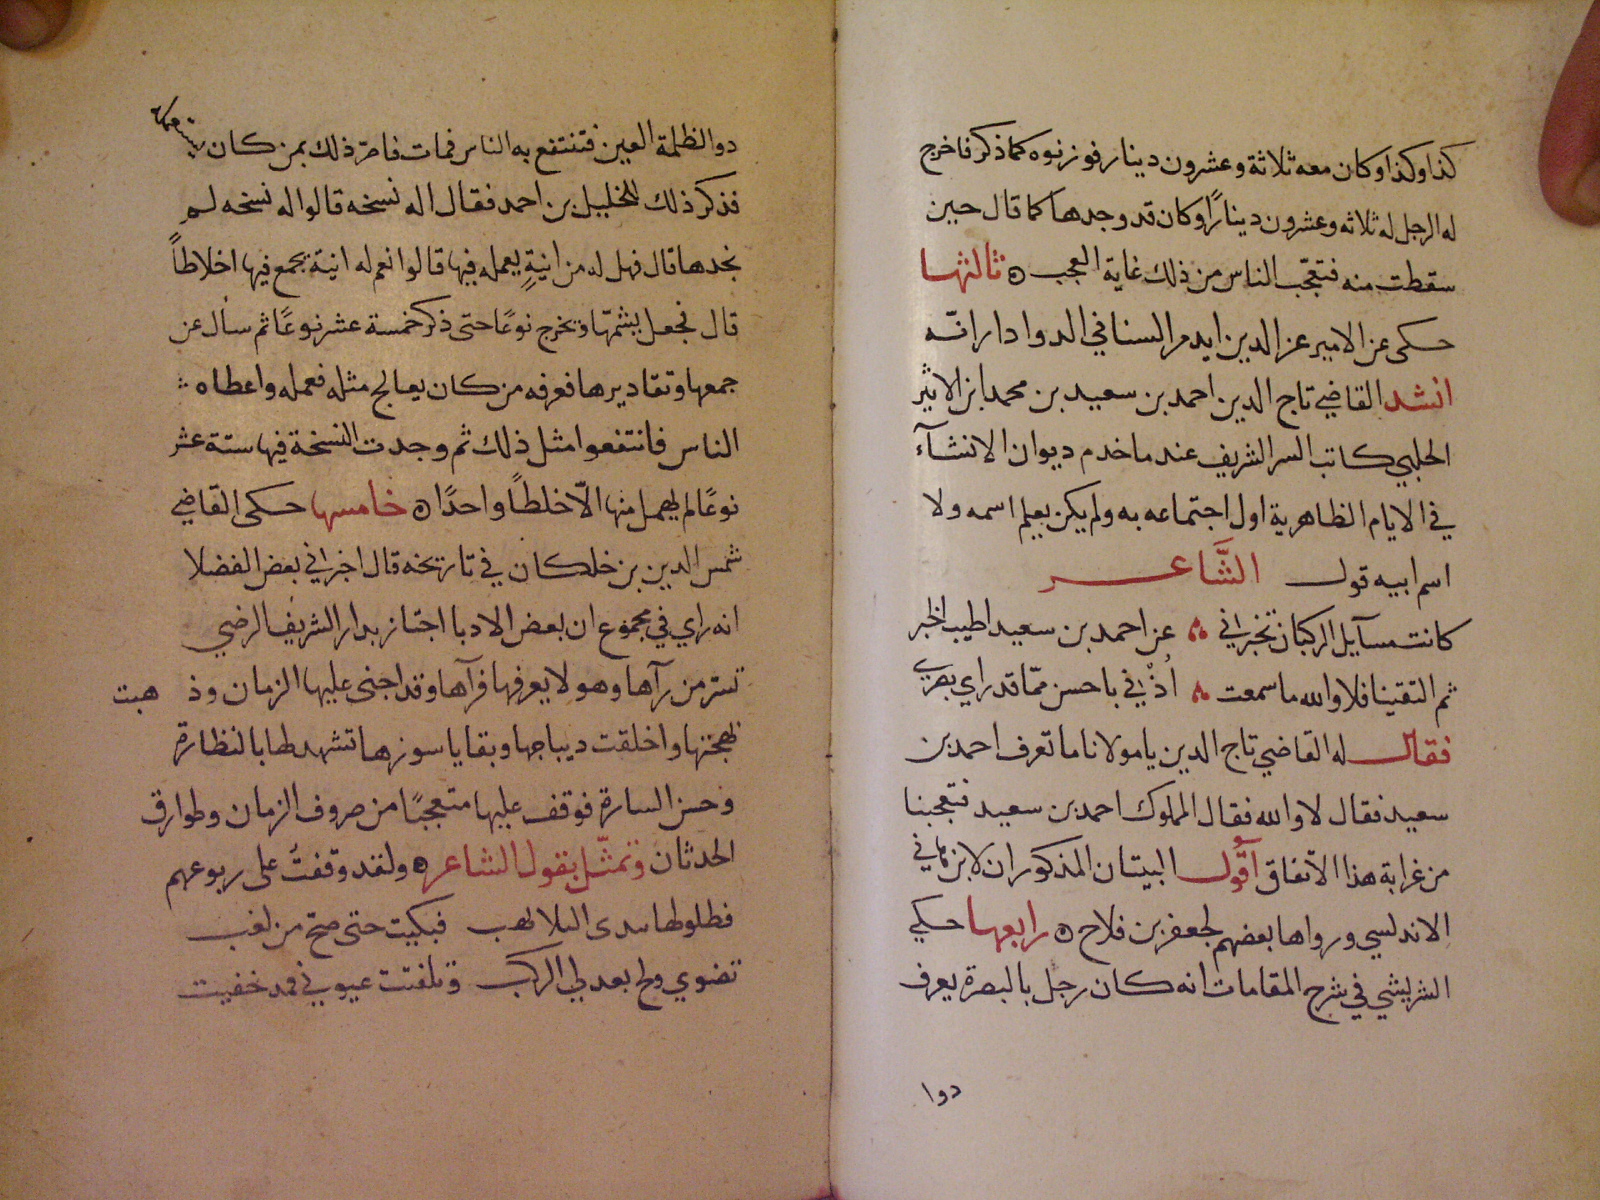 كذا وكذا وكان معه ثلاثة وعشرون دينار فوزنوه كما ذكر فاخرج
له الرجل له ثلاثه وعشرون دينارًا وكان قد وجدها كما قال حين
سقطت منه فتعجّب الناس من ذلك غاية العجب ۞ ثالثها
حكى عن الامير عز الدين ايدمر السنافي الدوادار انّه
انشد القاضي تاج الدين احمد بن سعيد بن محمد ابن الاثير
الحلبي كاتب السر الشريف عندما خدم ديوان الانشآء
في الايام الظاهرية اول اجتماعه به ولم يكن يعلم اسمه ولا
اسم ابيه قول الشَّاعر
كانت مسآيل الركبان تخبراني عن احمد بن سعيد اطيب الخبر
ثم التقينا فلا والله ما سمعت اُذْني باحسن ممّا قد راي بصري
فقال له القاضي تاج الدين يا مولانا ما تعرف احمد بن
سعيد فقال لا والله فقال المملوك احمد بن سعيد فتعجبنا
من غرابة هذا الاتفاق اَقُول البيتان المذكوران لابن هاني
الاندلسي ورواها بعضهم لجعفر بن فلاح ۞ رابعها حكي
الشريشي في شرح المقامات انه كان رجل بالبصرة يعرف
دوا
دوا لظلمة العين فتنتفع به الناس فمات فاضرّ ذلك بمن كان يستعمله
فذكر ذلك للخليل بن احمد فقال اله نسخه قالوا له نسخه لم
نجدها قال فهل له من انيةٍ يعمله فيها قالوا نعم له انية يجمع فيها اخلاطاً
قال فجعل يشمّها ويخرج نوعًا حتى ذكر خمسة عشر نوعًا ثم سأل عن
جمعها وتقاديرها فعرفه من كان يعالج مثله فعمله واعطاه
الناس فانتفعوا مثل ذلك ثم وجدت النسخة فيها ستة عشر
نوعًا لم يهمل منها الاّ خلطًا واحدًا ۞ خامسها حكى القاضي
شمس الدين بن خلكان في تاريخه قال اخبراني بعض الفضلا
انه راي في مجموع ان بعض الادبا اجتاز بدار الشريف الرضي
بسر من رآها وهو لا يعرفها فرآها وقد اجنى عليها الزمان وذهبت
بهجتها واخلقت ديباجها وبقايا سوزها تشهد لها بالنظارة
وحسن السارة فوقف عليها متعجبًا من صروف الزمان وطوارق
الحدثان وتمثّل بقول الشاعر ۞ ولقد وقفتُ على ربوعهم
فطلولها بيدى البلا نهب فبكيت حتى ضج من لغب
نضوي ولج بعدلي الركب وتلفتت عيوني فمد خفيت